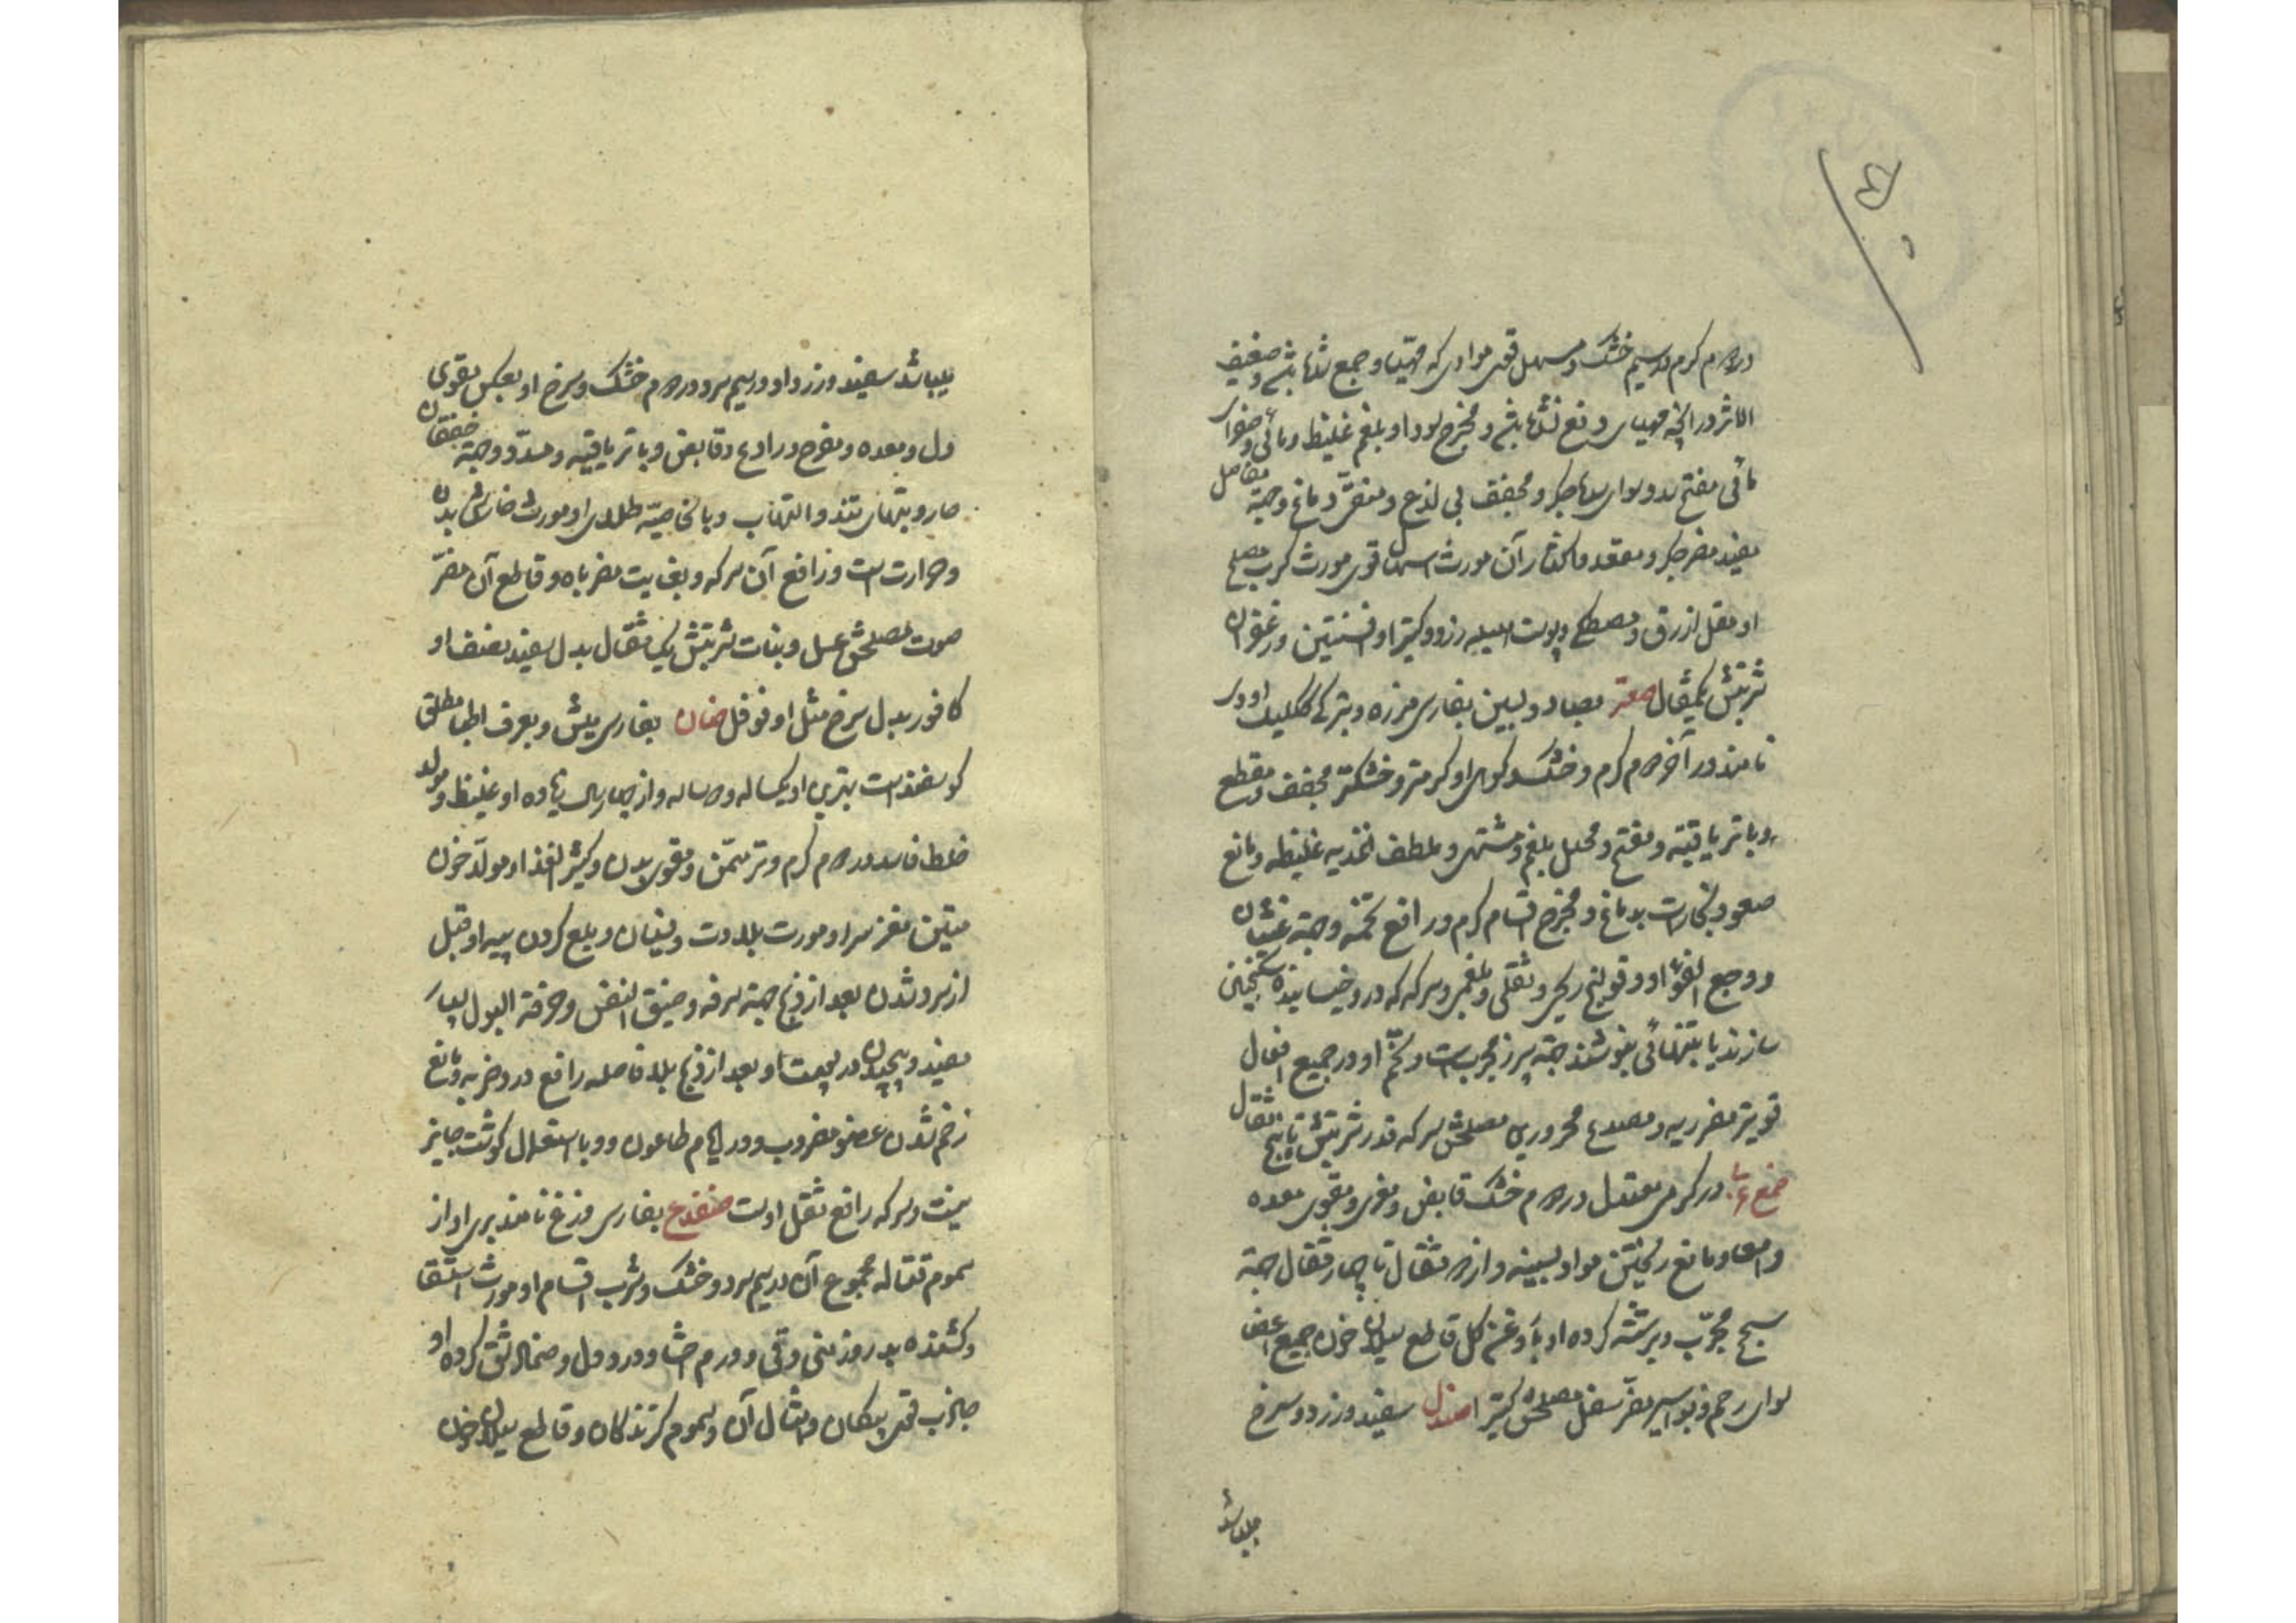 در دوم گرم و در سیم خشک و مسهل قوی موادی که مهیا و جمع شده باشد و ضعیف
الاثر در آنچه مهیای دفع نشده باشد و مخرج سودا و بلغم غلیظ و مائی و صفرای
مائی مفتح سدد و ادرار جگر و مجفف بی لذع و منقی دماغ و جهة مفاصل
مفید مضر جگر و مقعد و اکثار آن مورث اسهال قوی مورث کرب مصلح
او مقل ازرق و مصطکی و پوست هلیله زرد و کتیرا و افسنتین و زعفران
شربتش یکمثقال صعتر بصاد و بسین بفارسی مرزه و بترکی ککلیک اودی
نامند در آخر دوم گرم و خشک و کوهی او گرمتر و خشکتر مجفف و مقطع
و با تریاقیه و مفتح و محلل بلغم و مشتهی و ملطف اغذیه غلیظه و مانع
صعود بخارات بدماغ و مخرج اقسام کرم و رافع تخمه و جهة غثیان
و وجع الفؤاد و قولنج ریحی و ثقلی و بلغمی و سرکه که درو خیسانیده سکنجبین
سازند یا بتنهائی بنوشند جهة سپرز مجربست و تخم او در جمیع افعال
قویتر مضر ریه و مصدع محرورین مصلحش سرکه قدر شربتش تا پنج مثقال
صمغ عربی در گرمی معتدل در دوم خشک قابض و مغری و مقوی معده
و امعا و مانع ریختن مواد بسینه و از دو مثقال تا چهار مثقال جهة
سحج مجرب و برشته کرده او با روغن گل قاطع سیلان خون جمیع اعضا
سوای رحم و بواسیر مضر سفل مصلحش کتیرا صندل سفید و زرد و سرخ
میباشد
میباشد سفید و زرد او در سیم سرد و در دوم خشک و سرخ او بعکس مقوی
دل و معده و مفرح و رادع و قابض و با تریاقیه و مسدد و جهة خفقان
حار و تبهای تند و التهاب و بالخاصیة طلای او مورث خارش بدن
و حرارتست و رافع آن سرکه و بغایت مضر باه و قاطع آن مضر
صوت مصلحش عسل و نبات شربتش یک مثقال بدل سفید نصف او
کافور بدل سرخ مثل او فوفل ضان بفارسی میش و بعرف اطبا مطلق
گوسفند است بهترین او یکساله و دو ساله و از چهار سال زیاده او غلیظ و مولد
خلط فاسد در دوم گرم و تر مسمن و مقوی بدن و کثیر الغذا و مولد خون
متین مغز سر او مورث بلادت و نسیان و بلع کردن پیه او قبل
از سرد شدن بعد از ذبح جهة سرفه و ضیق النفس و حرقة البول بسیار
مفید و پیچیدن در پوست او بعد از ذبح بلا فاصله رافع درد ضربه و مانع
زخم شدن عضو مضروب و در ایام طاعون و وبا استعمال گوشت جایز
نیست و سرکه رافع ثقل اوست ضفدع بفارسی وزغ نامند بری او از
سموم قتاله مجموع آن در سیم سرد و خشک و شرب اقسام او مورث استسقا
و کشنده بدر روز منی و قی و ورم احشا و درد دل و ضماد شق کرده او
جاذب قوی پیکان و امثال آن و سموم گزندگان و قاطع سیلان خون